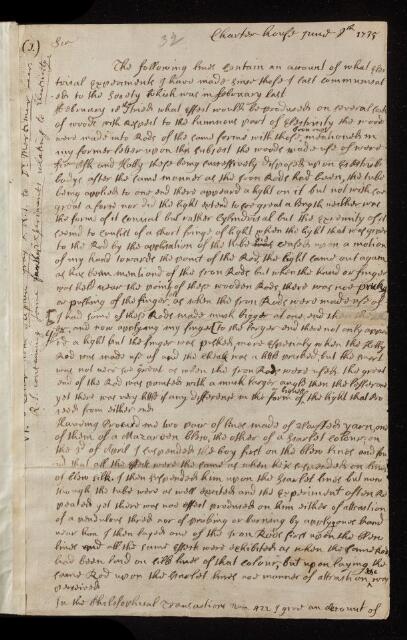 (2)
32
Charter house June 9th 1735
Sr
The following lines contain an account of what Elec
trical experiments I have made since those I last communicat
ed to the Society which was in february last
february 18th I tried what effect would be produced on several sorts
of woods with respect to the luminous part of Electricity the wood
were made into Rods of the same forms with those of Iron mentioned in
my former letter upon this subject the woods made use of were
firr Ash and Holly these being successively disposed upon Electrick
bodys after the same manner as the Iron Rods had been, the tube
being applyed to one end there appeared a light on it but not with soe
great a force nor did the light extend to soe great a length neither was
the form of it conical but rather Cylindrical but the extremity of it
seemd to consist of a short fringe of light when the light that was given
to the Rod by the application of the tube ceases upon a motion
of my hand towards the point of the Rod, the light came out again
as has been mentiond of the Iron Rods but when the hand or finger
was held near the point of these wooden Rods there was noe pricking
or pushing of the finger felt as when the Iron Rods were made use of
I had some of these Rods made much bigger at one end
and now applying my finger to the larger end there not only appear
ed a light but the finger was pushed more especially when the Holly
Rod was made use of and the cheek was a little pricked but the smart
was not near soe great as when the Iron Rods were used. the great
end of the Rod was pointed with a much larger angle then the lesser one
yet there was very little if any difference in the form of the light that pro
ceed from either end
Having procured me two pair of lines made of Worsted yarn, one
of them of a Mazareen blew, the other of a Scarlet colour, on
the 3d of April I suspended the boy first on the blew lines and fou
nd that all the effects were the same as when he is suspended on lines
of blew silk, I then suspended him upon the Scarlet lines but now
though the tube were as well excited and the experiment often re
peated yet there was noe effect produced on him either of attraction
of a pendulous thred nor of pricking or burning by applying ones hand
near him I then layed one of the Iron Rods first upon the blew
lines and all the same Effects were exhibited as when the same Rod
had been laid on silk lines of that colour, but upon laying the
same Rod upon the Scarlet lines noe manner of attraction was
perceived
In the Philosophical Transactions num 422 I give an account of